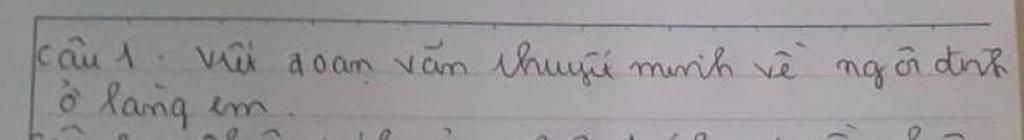 Câu 1. Viết đoạn văn thuyết minh về ngôi đình
ở làng em.